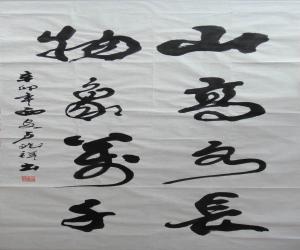 山高水長
物象萬千
辛卯年
書